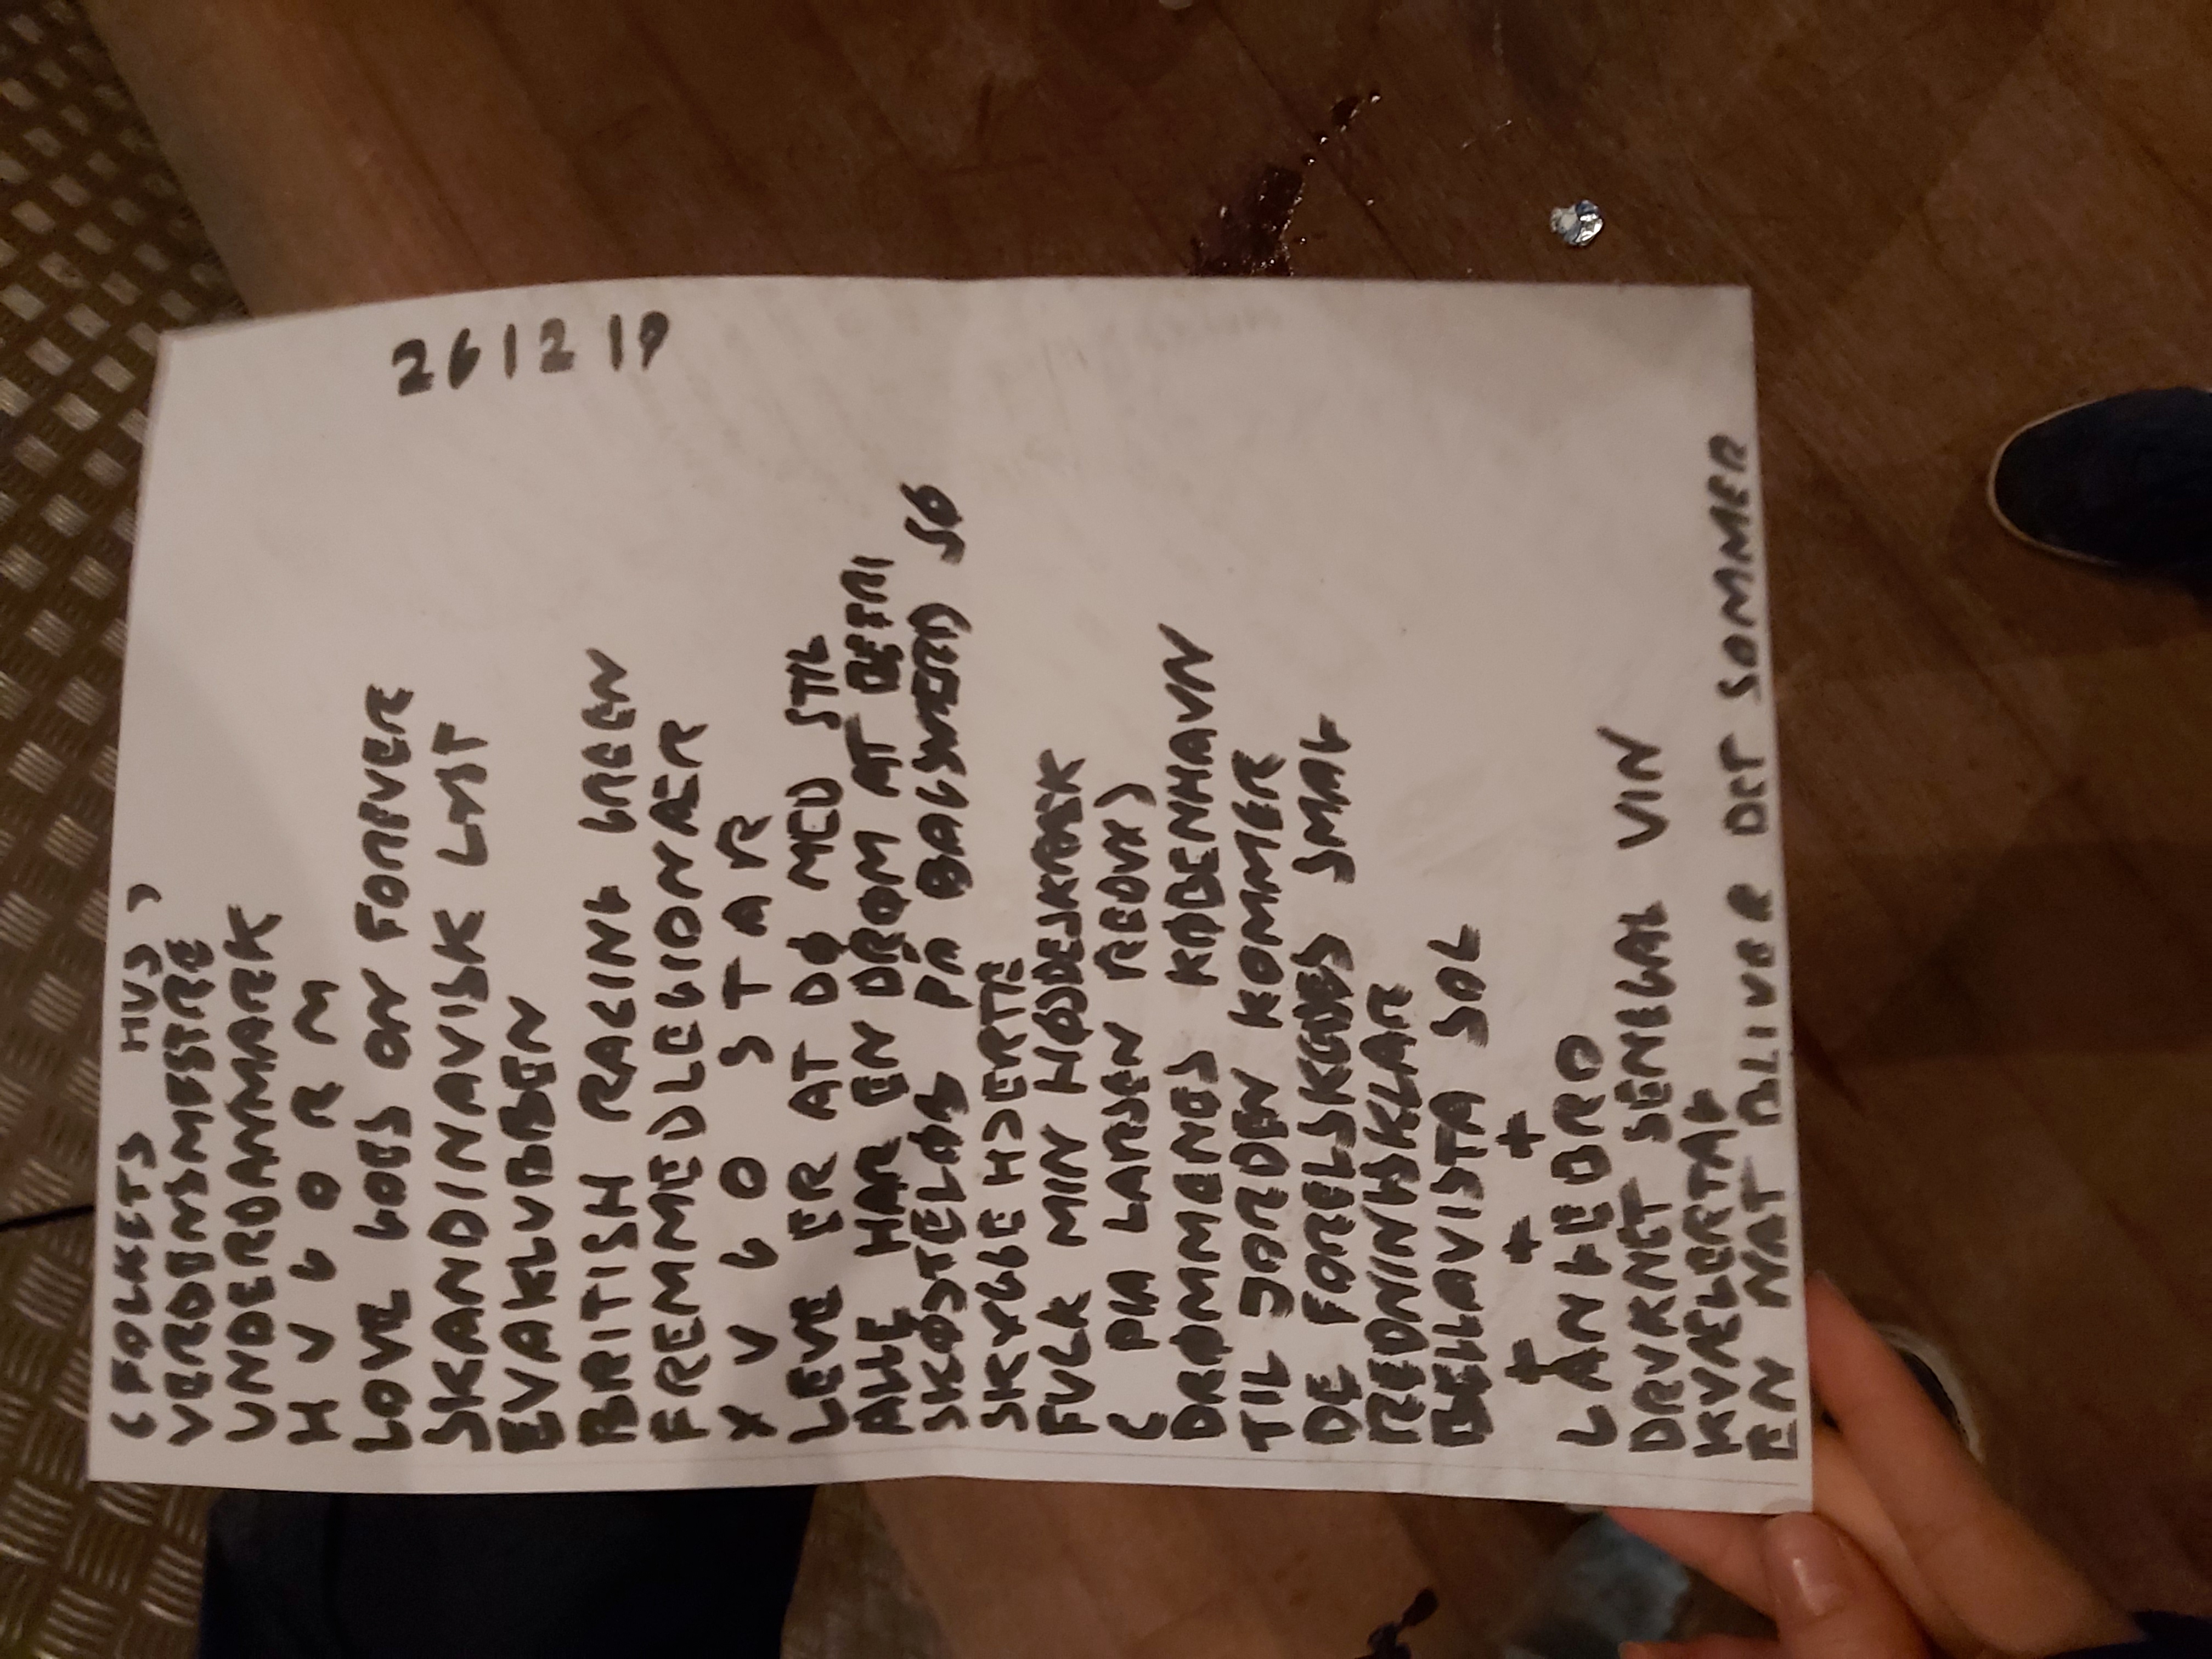 261219
(FOLKETS HUS)
VERDENSMESTRE
UNDERDANMARK
HVGORM
LOVE GOES ON FORPVER
SKANDINAVISK LYST
EVAKLUBBEN
BRITISH RACING GREEN
FREMMEDLEGIONÆR
XVGO STAR
LEVE ER AT DØ MED STIL
ALLE HAR EN DRØM AT BEFRI
SKØJTELØB PÅ BAGSVÆRD SØ
SKYGGEHJERTE
FUCK MIN HOVEDSKRÆK
(PIA LARSEN REDUX)
DRØMMENES KØBENHAVN
TIL JORDEN KOMMER
DE FORELSKEDES SMAL
REDNINGSKLAR
BELLAVISTA SOL
+ + +
LANGEBRO
DRUKNET SENEGAL VIN
KVÆLERTAG
EN NAT BLIVER DET SOMMER